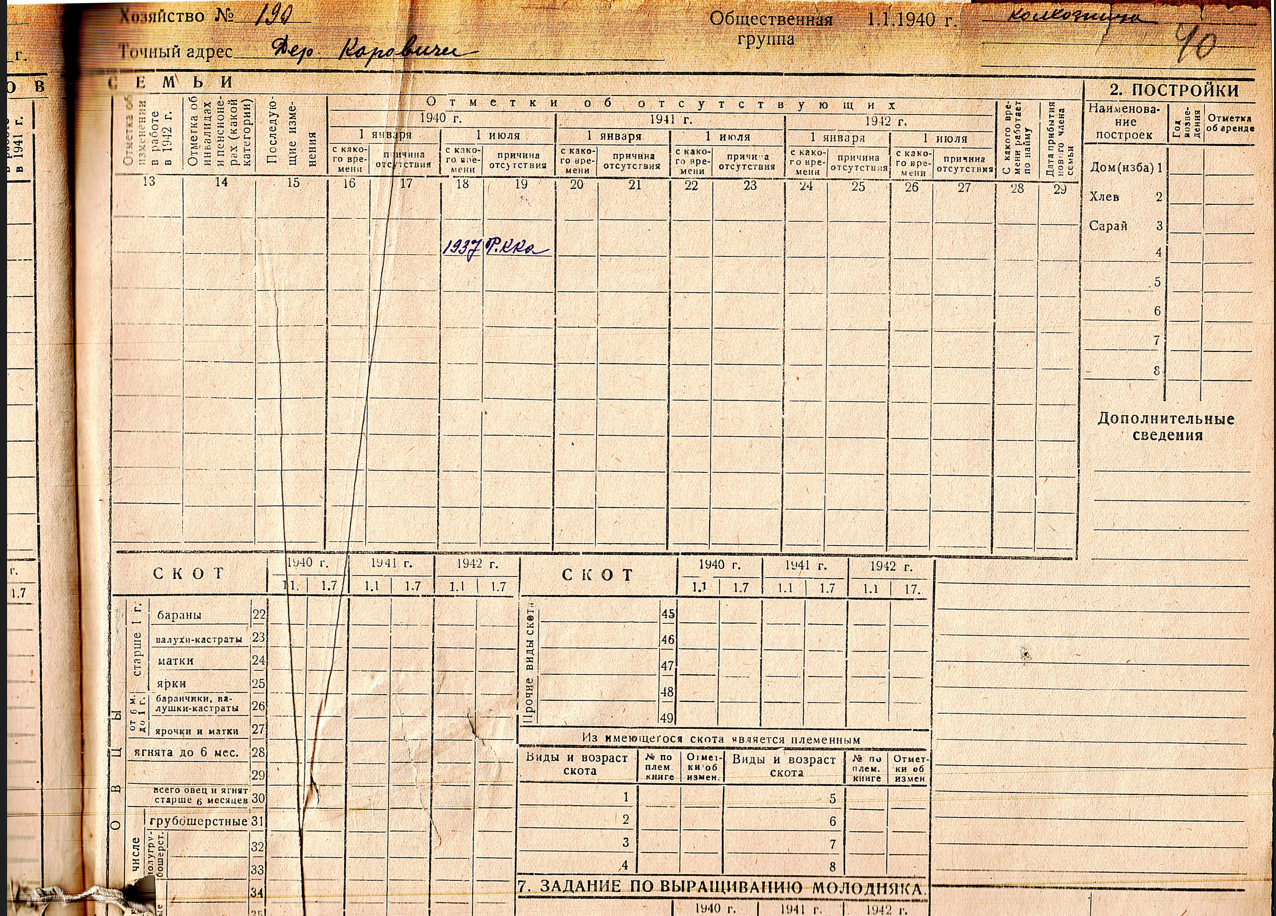 Хозяйство № 190
Общественная группа 1.1.1940 г. колхозница
40
Точный адрес Дер Каровичи
г.
О В
СЕМЬИ
в 1941 г.
Отметка об изменении в работе в 1942 г.
Отметка об инвалидах и пенсионерах (какой категории)
Последующие изменения
Отметки об отсутствующих
1940 г. 1941 г. 1942 г.
1 января 1 июля 1 января 1 июля 1 января 1 июля
с какого времени причина отсутствия с какого времени причина отсутствия с какого времени причина отсутствия с какого времени причина отсутствия с какого времени причина отсутствия с какого времени причина отсутствия
С какого времени работает по найму
Дата прибытия нового члена семьи
13 14 15 16 17 18 19 20 21 22 23 24 25 26 27 28 29
1937 Р.К.К.а
2. ПОСТРОЙКИ
Наименование построек
Год возведения
Отметка об аренде
Дом (изба) 1
Хлев 2
Сарай 3
4
5
6
7
8
Дополнительные сведения
г.
1.7
СКОТ
1940 г. 1941 г. 1942 г.
1.1. 1.7 1.1 1.7 1.1 1.7
ОВЦЫ
старше 1 г.
бараны 22
валухи-кастраты 23
матки 24
ярки 25
от 6 м. до 1 г.
баранчики, валушки-кастраты 26
ярочки и матки 27
ягнята до 6 мес. 28
29
всего овец и ягнят старше 6 месяцев 30
числе
грубошерстные 31
полугрубошерст.
32
33
34
35
СКОТ
1940 г. 1941 г. 1942 г.
1.1 1.7 1.1 1.7 1.1 17.
Прочие виды скота
45
46
47
48
49
Из имеющегося скота является племенным
Виды и возраст скота № по плем книге Отметки об измен. Виды и возраст скота № по плем. книге Отметки об измен
1 5
2 6
3 7
4 8
7. ЗАДАНИЕ ПО ВЫРАЩИВАНИЮ МОЛОДНЯКА.
1940 г. 1941 г. 1942 г.